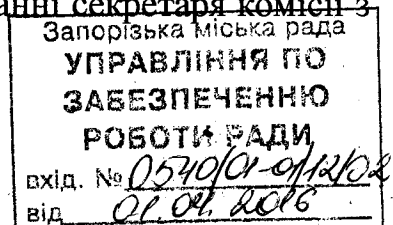 анні секретаря комісії з
Запорізька міська рада
УПРАВЛІННЯ ПО
ЗАБЕЗПЕЧЕННЮ
РОБОТИ РАДИ
вхід. № 0540/01-01/12/02
від 01.04.2016